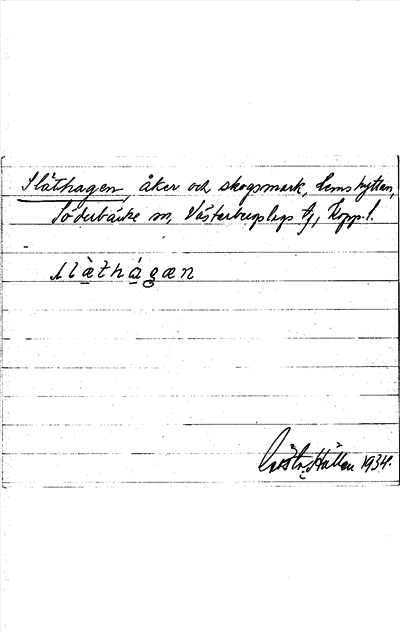 Slåthagen, åker och skogsmark, Lernshyttan,
Söderbärke sn, Västerbergslags tg, Kopp. l.
slàthágæn
Hallén 1934.